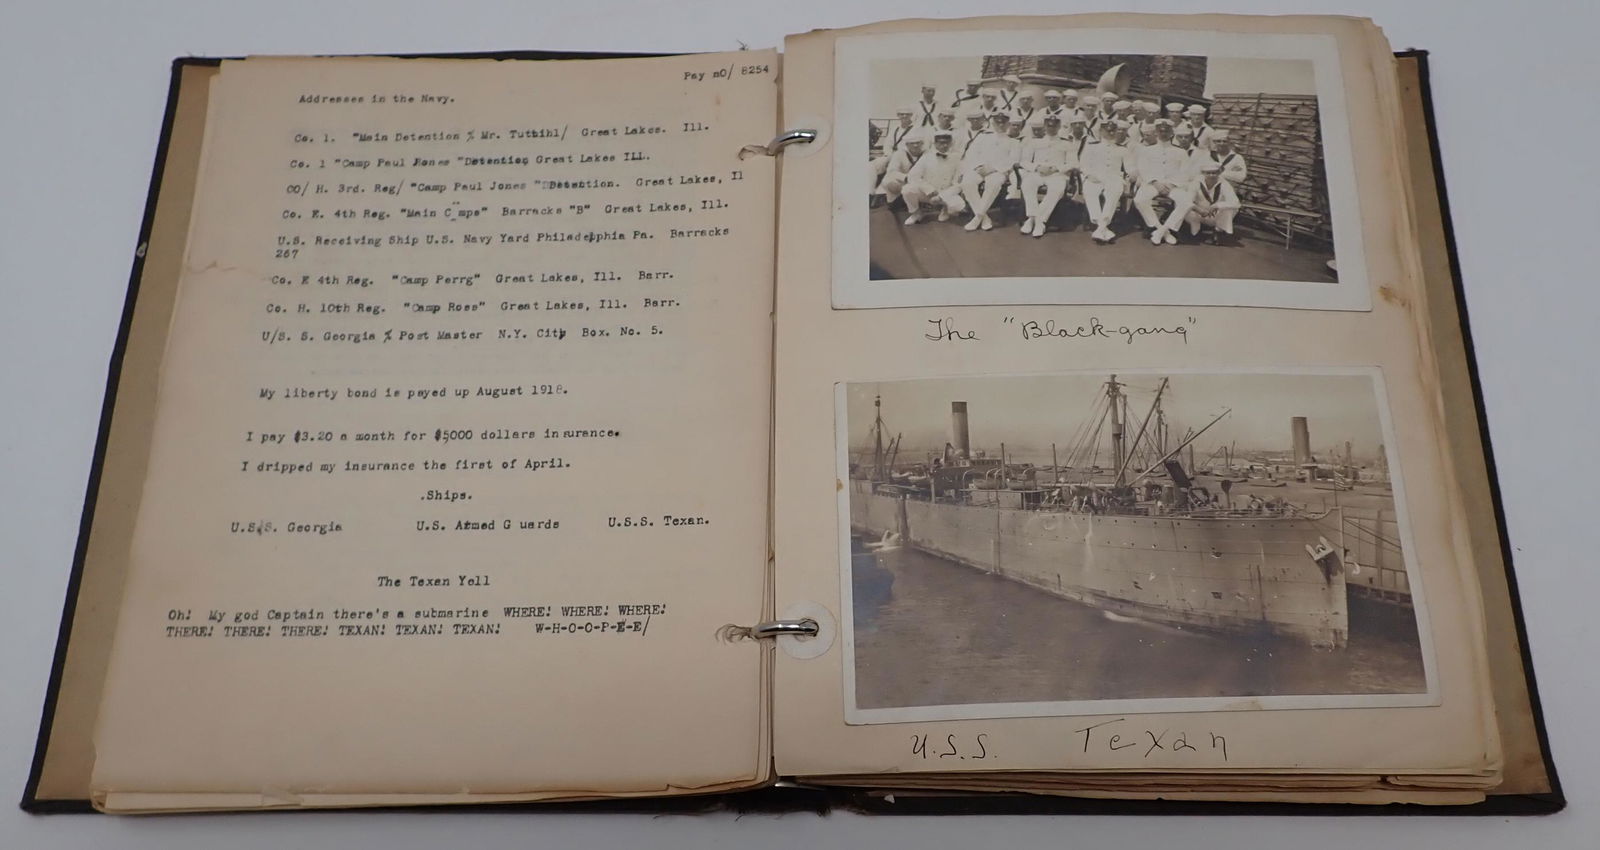 Pay nO/ 8254
Addresses in the Navy.
Co. 1. "Main Detention % Mr. Tuttihl/ Great Lakes. Ill.
Co. 1 "Camp Paul Jones "Detention Great Lakes Ill.
CO/ H. 3rd. Reg/ "Camp Paul Jones "Detention. Great Lakes, Il
Co. E. 4th Reg. "Main Camps" Barracks "B" Great Lakes, Ill.
U.S. Receiving Ship U.S. Navy Yard Philadelphia Pa. Barracks
267
Co. E 4th Reg. "Camp Perrg" Great Lakes, Ill. Barr.
Co. H. 10th Reg. "Camp Ross" Great Lakes, Ill. Barr.
U/S. S. Georgia % Post Master N.Y. City Box. No. 5.
My liberty bond is payed up August 1918.
I pay $3.20 a month for $5000 dollars insurance.
I dripped my insurance the first of April.
.Ships.
U.S.S. Georgia U.S. Atmed G uards U.S.S. Texan.
The Texan Yell
Oh! My god Captain there's a submarine WHERE! WHERE! WHERE!
THERE! THERE! THERE! TEXAN! TEXAN! TEXAN! W-H-O-O-P-E-E/
The "Black-gang"
U.S.S. Texan